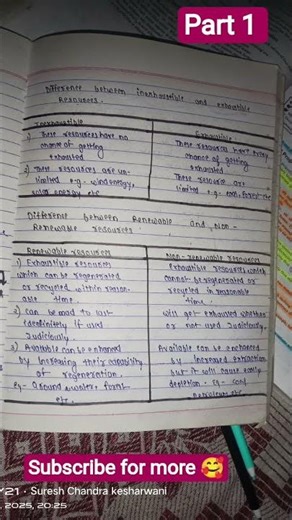 Part 1
Difference between inexhaustible and exhaustible
Resources.
Inexhaustible
1) These resources have no
chance of getting
exhausted
2) These resources are un-
limited e.g - wind energy,
solar energy etc
Exhaustible
These resources have every
chance of getting
exhausted
These resource are
limited e.g - coal, forest etc.
Difference between Renewable and non-
Renewable resources
Renewable resources
1) Exhaustible resources
which can be regenerated
or recycled within reason-
able time.
2) can be mad to last
indefinitely if used
Judiciously.
3) Available can be enhanced
by increasing their capability
of regeneration.
eg - Ground water, forest
etc.
Non-renewable resources
Exhaustible resources which
cannot be regenerated or
recycled in reasonable
time.
will get exhausted whether
or not used Judiciously.
Available can be enhanced
by increased extraction
but it will cause early
depletion. eg - coal
petroleum etc.
Subscribe for more 🥰
Y21 • Suresh Chandra kesharwani
, 2025, 20:25